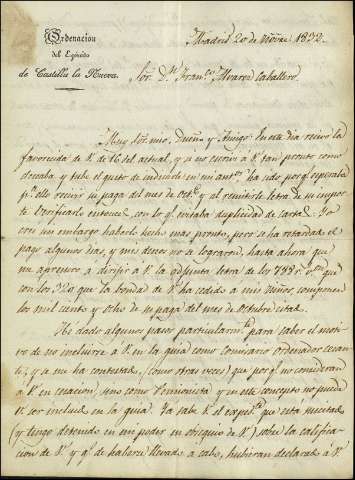 Ordenacion
del Egército
de Castilla la Nueva.
Madrid 20 de Novre 1832.
Sor. Dn. Franco. Alvarez Caballero.
Muy Sor. mio, Dueño y Amigo: En este dia recivo la
favorecida de V. de 16 del actual, y si no escrivi a V. tan pronto como
deseaba, y tube el gusto de indicarle en mi antr. ha sido porq. esperaba
recivir su paga del mes de Octe. y al remitirle letra de su importe
verificarlo entonces, con lo q. evitaba duplicidad de cartas. Yo
crei sin embargo haberlo hecho mas pronto, pero se ha retardado el
pago algunos dias, y mis deseos no se lograron, hasta ahora que
me apresuro a dirijir a V. la adjunta letra de los 788 rs. von. que
con los 320 que la bondad de V. ha cedido a mis Niños, componen
los mil ciento y ocho de su paga del mes de Octubre citado.
He dado algunos pasos particularmte. para saber el moti-
vo de no incluirse a V. en la guia como Comisario Ordenador cesan-
te, y se me ha contestado, (como otras veces) que porq. no consideran
a V. en cesacion, sino como Pensionista y en este concepto no puede
V. ser incluido en la guia. Ya sabe V. el expte. que esta
(y tengo detenido en mi poder en obsequio de V.) sobre la califica-
cion de V. y q. de haberse llevado a cabo, hubieran declarado a V.